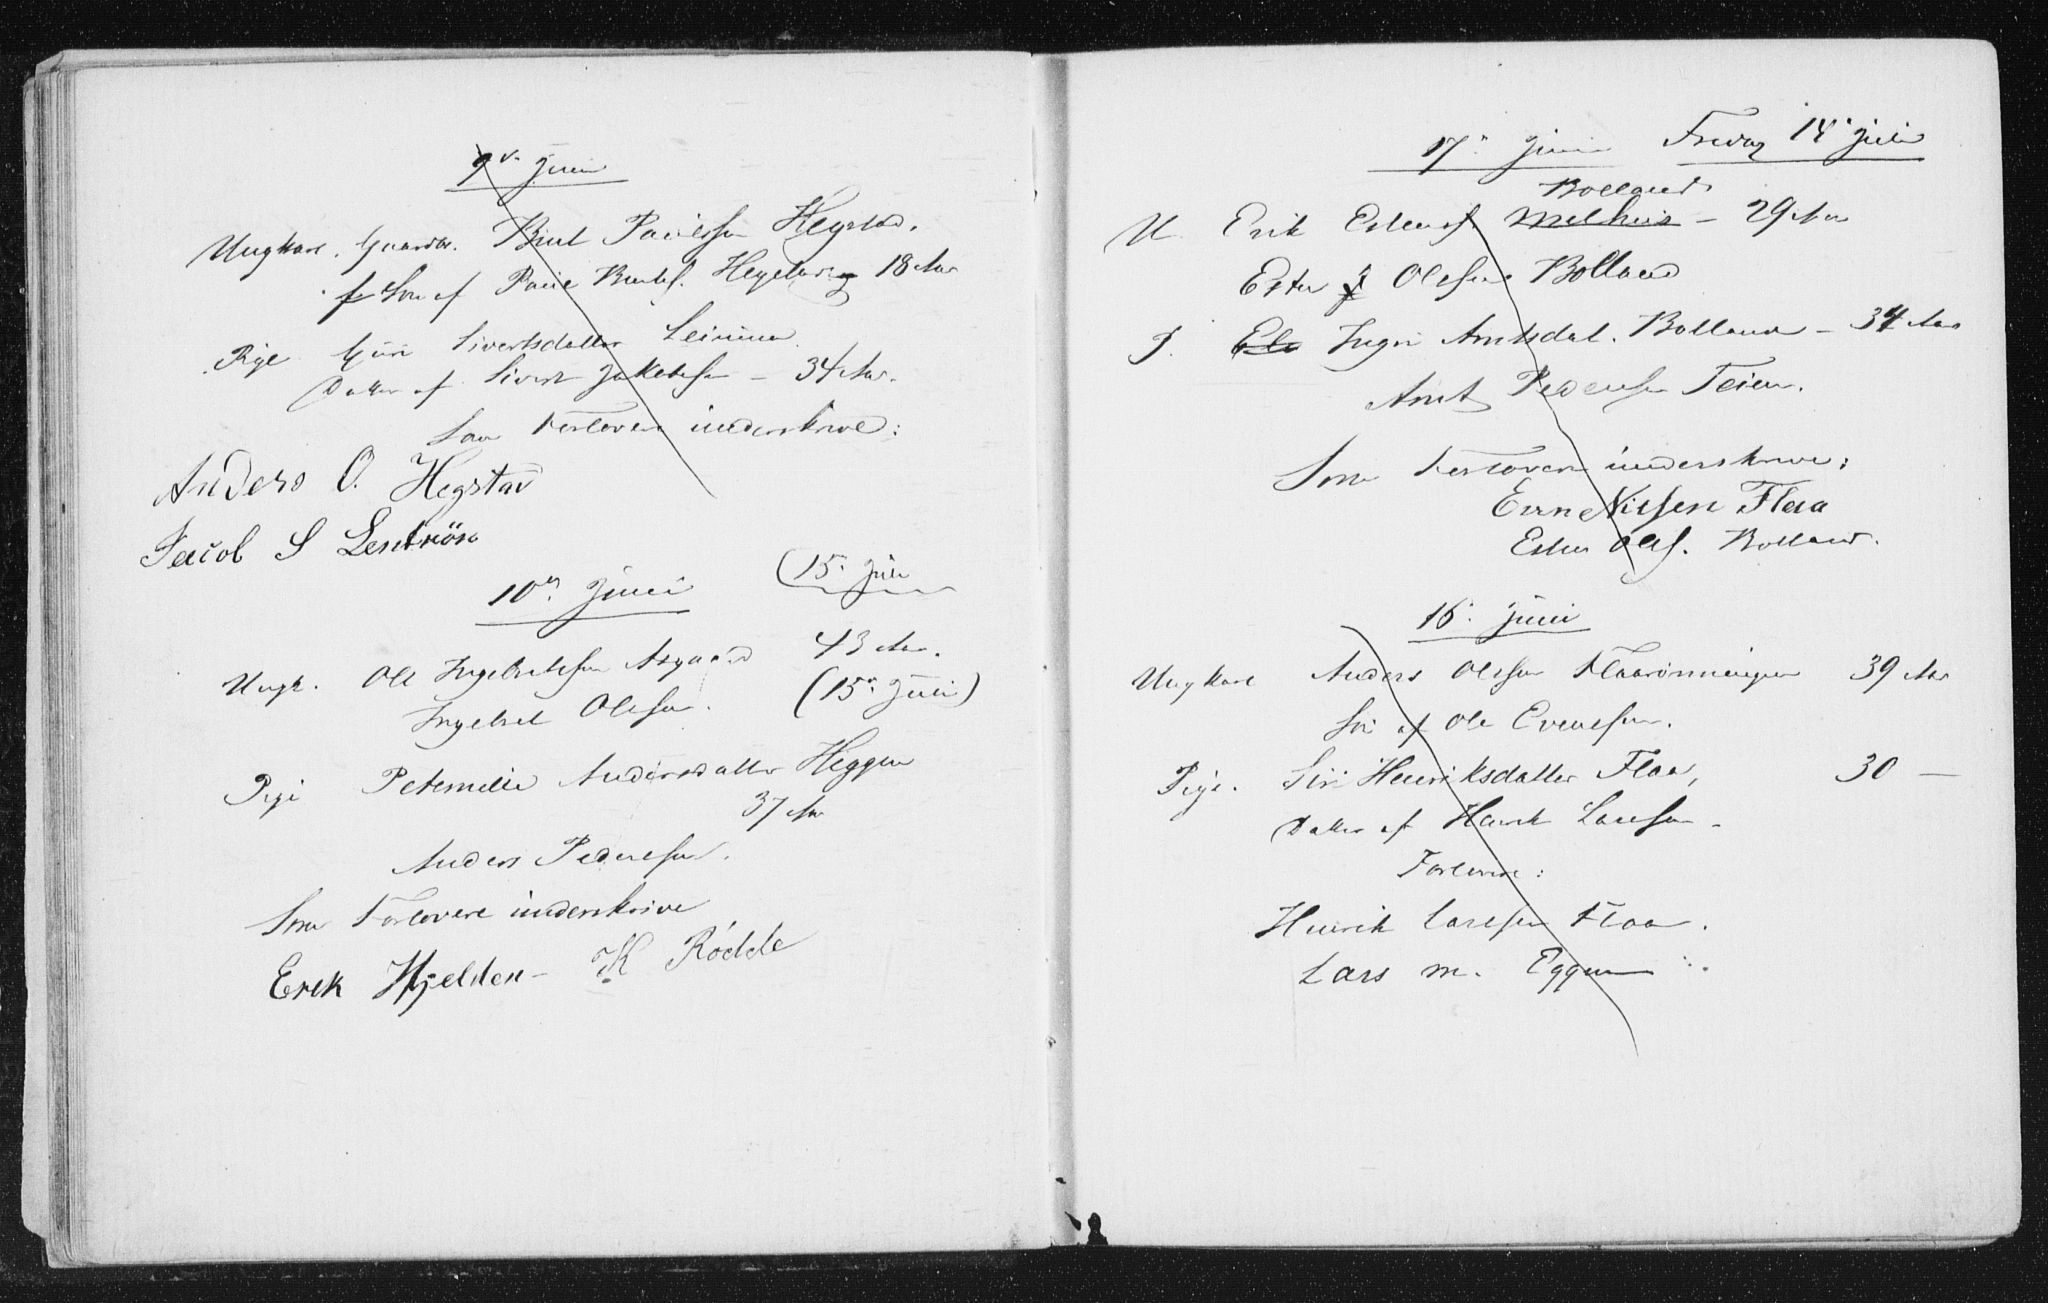 9de Juni
Ungkarl. Gaardbr. Brut Paulsen Hegstad.
Søn af Paul Brutss. Hegstad 18 Aar
Pige Guri Sivertsdatter Leinum
Datter af Sivert Jakobsen – 34 Aar.
Som Forlovere underskrive:
Anders O. Hegstad
Jacob S
10de Juni (15. Juli
Ungk. Ole Ingebretsen 43 Aar.
Ingebret Olsen. (15de Juli)
Pige Peternelle Andersdatter Heggen
37 Aar
Anders Pedersen.
Som Forlovere underskrive
Erik Hjelden – K Rødde
17. Juni Fredag 14. Juli
Bolland
U. Erik Estens. Melhus – 29 Aar
Esten Olsen Bolland
P. Ingri Arntsdat. Bolland – 34 Aar
Arnt Pedersen Teien.
Som Forlovere underskrive:
Even Nilsen Flaa
Esten Ols. Bolland.
16. Juni
Ungkarl Anders Olsen Flaarønningen 39 Aar
Søn af Ole Evensen.
Pige. Siri Henriksdatter Flaa, 30 —
Datter af Henrik Larsen –
Forlovere:
Henrik Larsen Flaa.
Lars M. Eggen